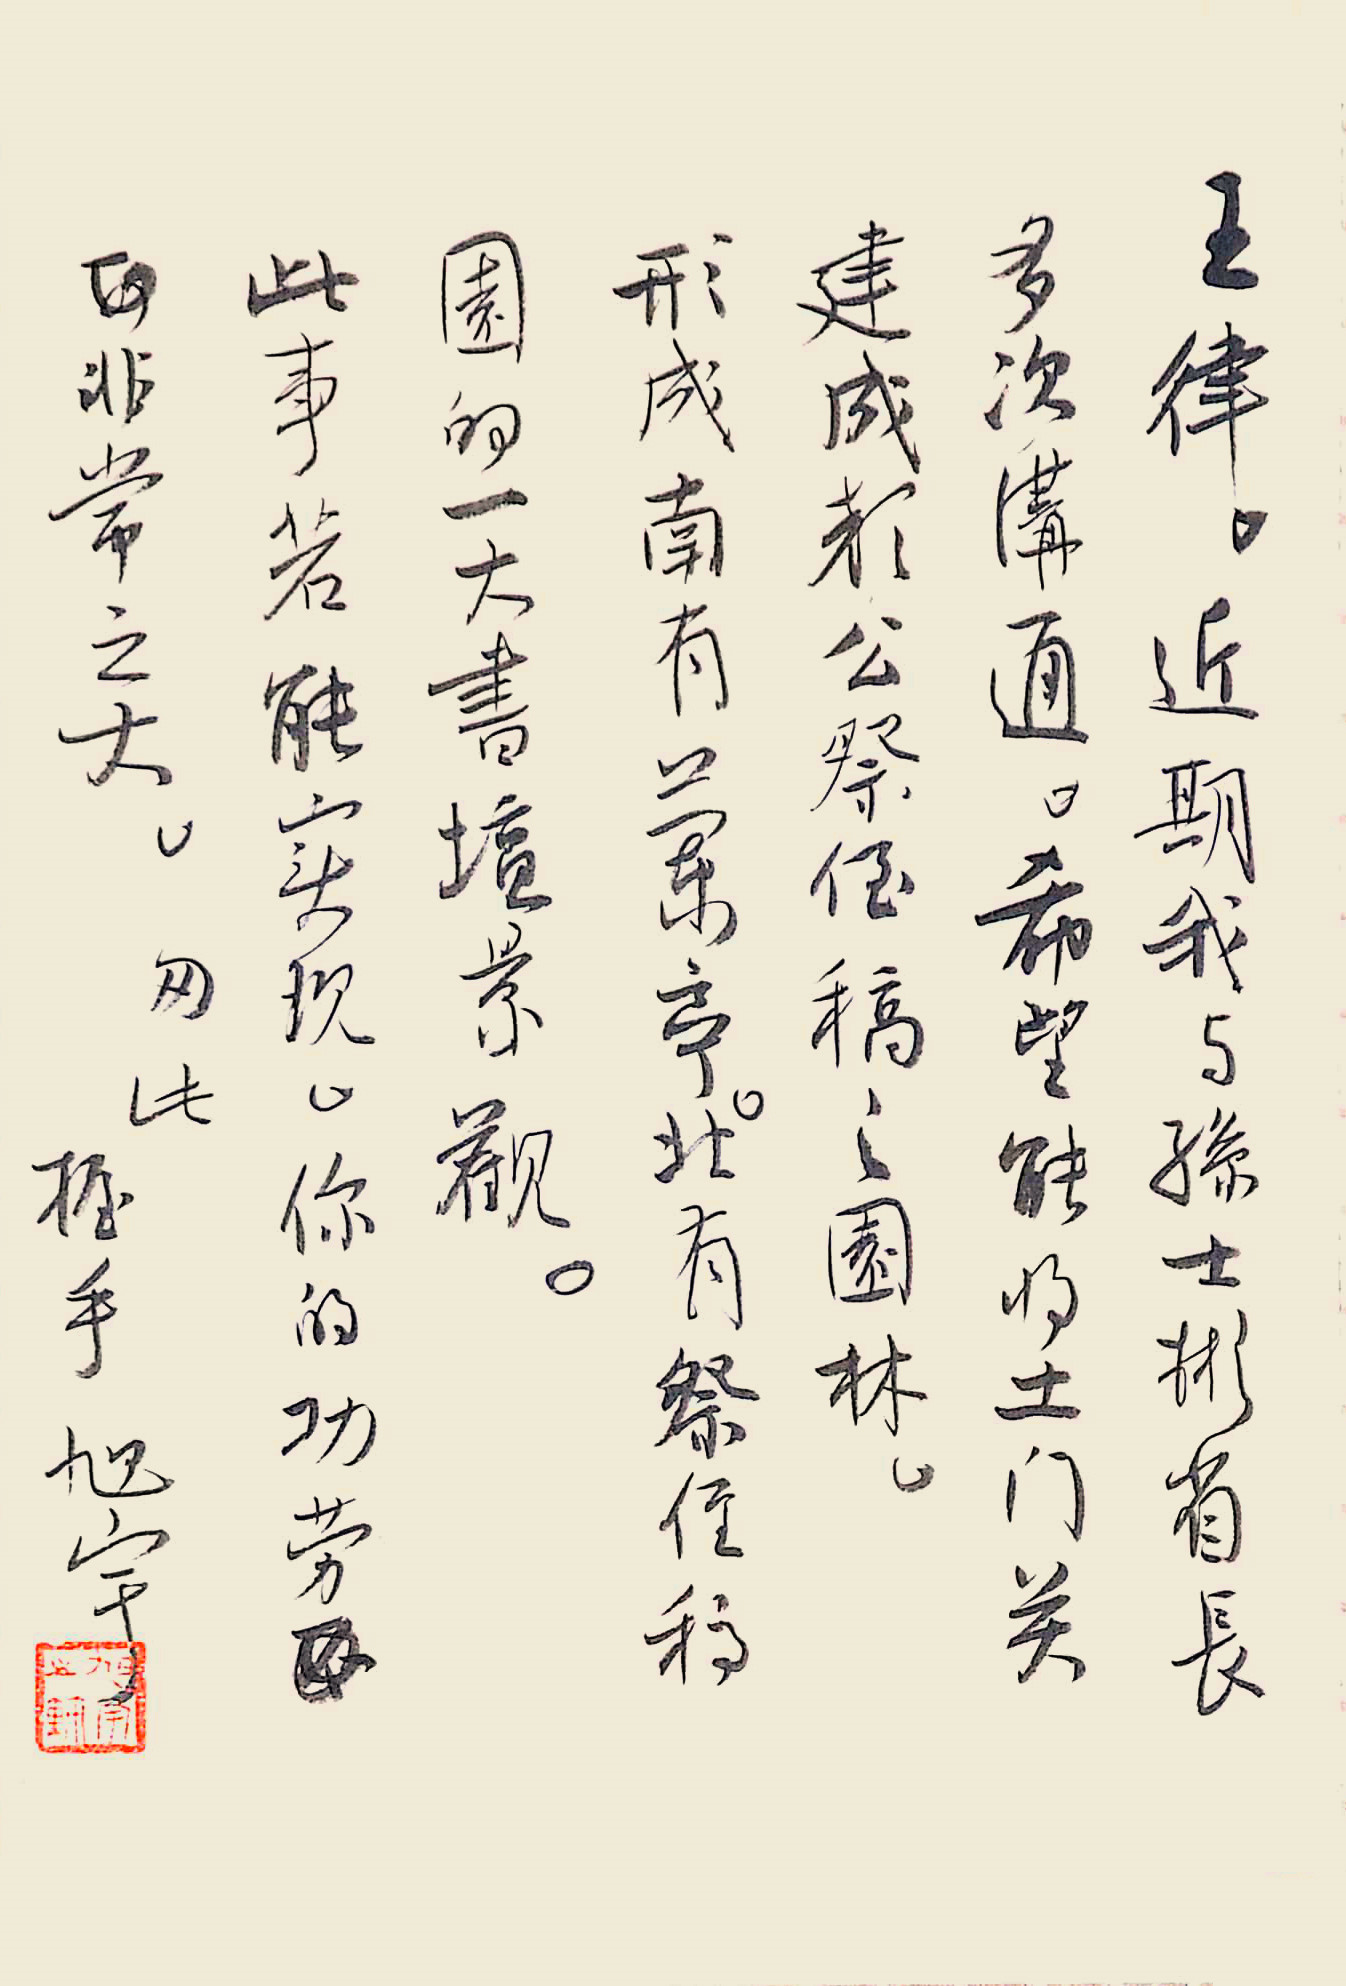 王律。近期我与孫士彬省長
多次溝通。希望能将土门关
建成颜公祭侄稿之園林。
形成南有蘭亭。北有祭侄稿
園的一大書壇景觀。
此事若能实现。你的功劳
非常之大。匆此
握手 旭宇